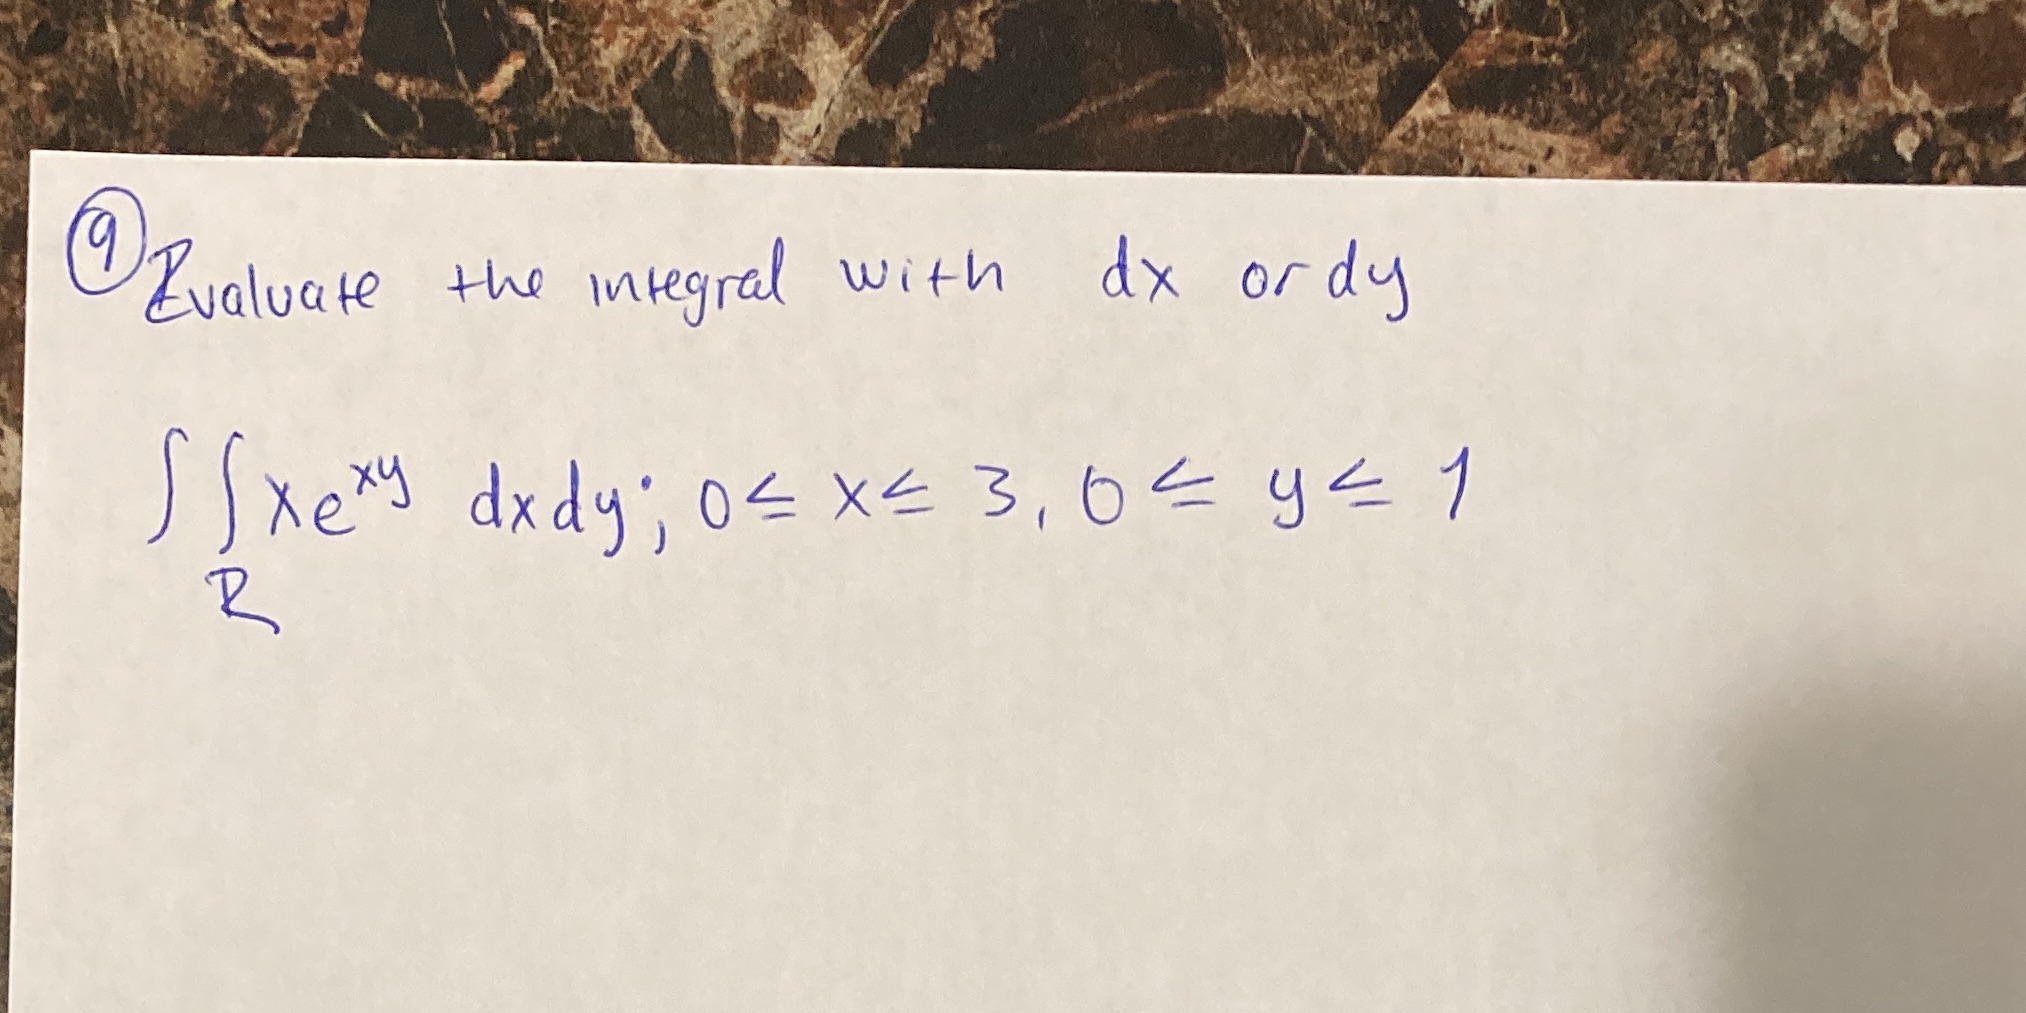 9 Evaluate the integral with dx or dy
∫∫xe^xy dxdy; 0≤ x≤ 3, 0≤ y≤ 1
R